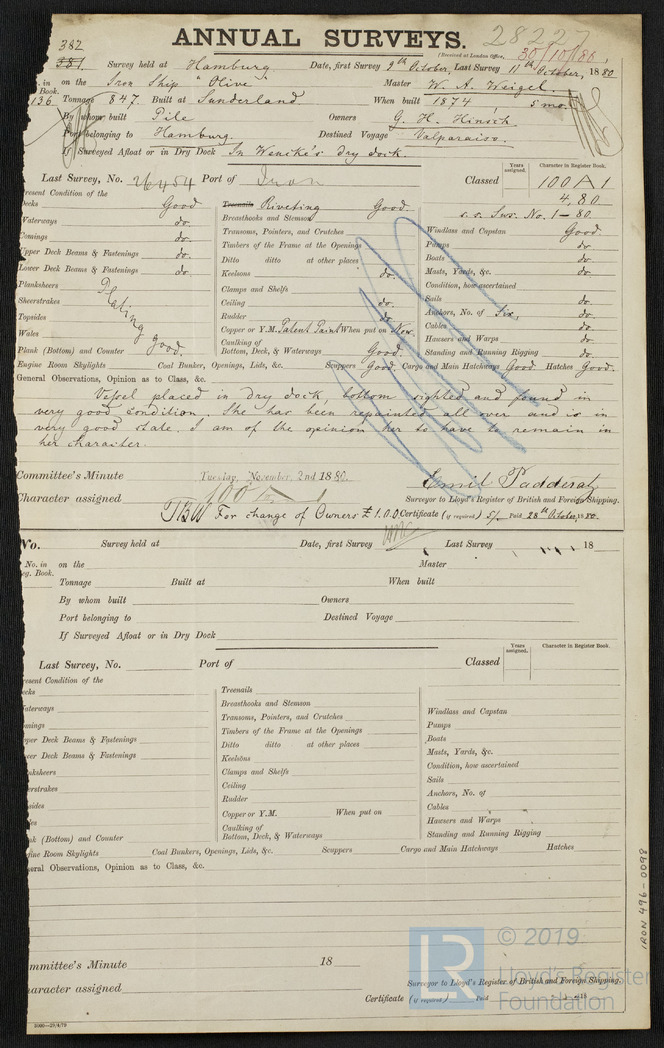 ANNUAL SURVEYS.
28227
(Received at London Office, 30/10/80)
382
381 Survey held at Hamburg Date, first Survey 9th October, Last Survey 11th October, 1880
in Book. on the Iron Ship "Olive" Master W. A. Weigel.
136 Tonnage 847. Built at Sunderland When built 1874, 5 mo.
By whom built Pile Owners G. H. Hinsch
Port belonging to Hamburg. Destined Voyage Valparaiso.
If Surveyed Afloat or in Dry Dock In Wencke's dry dock.
Last Survey, No. 26454 Port of Iron Classed
Years assigned. Character in Register Book.
100 A 1
4,80
s.s. Sus. No. 1-80.
resent Condition of the
ecks Good Treenails Riveting Good. Windlass and Capstan Good.
Waterways do. Breasthooks and Stemson Pumps do.
Comings do. Transoms, Pointers, and Crutches Boats do.
Upper Deck Beams & Fastenings do Timbers of the Frame at the Openings Masts, Yards, &c. do.
Lower Deck Beams & Fastenings do Ditto ditto at other places Condition, how ascertained
Planksheers Plating good. Keelsons do. Sails do.
Sheerstrakes Clamps and Shelfs Anchors, No. of Six, do.
Topsides Ceiling do. Cables do.
Wales Rudder do. Hawsers and Warps do.
Plank (Bottom) and Counter Copper or Y.M. Patent Paint When put on Now. Standing and Running Rigging do.
Caulking of Bottom, Deck, & Waterways Good.
Engine Room Skylights Coal Bunker, Openings, Lids, &c. Scuppers Good. Cargo and Main Hatchways Good Hatches Good.
General Observations, Opinion as to Class, &c.
Vessel placed in dry dock, bottom sighted and found in
very good condition. She has been repainted all over and is in
very good state. I am of the opinion her to have to remain in
her character.
Committee's Minute Tuesday, November 2nd 1880.
Character assigned 100 A 1
Surveyor to Lloyd's Register of British and Foreign Shipping.
For change of Owners £1.0.0. Certificate (if required) 5/. Paid 28th October, 1880.
No. Survey held at Date, first Survey Last Survey 18
No. in eg. Book. on the Master
Tonnage Built at When built
By whom built Owners
Port belonging to Destined Voyage
If Surveyed Afloat or in Dry Dock
Last Survey, No. Port of Classed
Years assigned. Character in Register Book.
resent Condition of the
ecks Treenails
aterways Breasthooks and Stemson Windlass and Capstan
mings Transoms, Pointers, and Crutches Pumps
pper Deck Beams & Fastenings Timbers of the Frame at the Openings Boats
wer Deck Beams & Fastenings Ditto ditto at other places Masts, Yards, &c.
nksheers Keelsons Condition, how ascertained
erstrakes Clamps and Shelfs Sails
sides Ceiling Anchors, No. of
les Rudder Cables
Copper or Y.M. When put on Hawsers and Warps
nk (Bottom) and Counter Caulking of Bottom, Deck, & Waterways Standing and Running Rigging
gine Room Skylights Coal Bunkers, Openings, Lids, &c. Scuppers Cargo and Main Hatchways Hatches
eral Observations, Opinion as to Class, &c.
mmittee's Minute 18
aracter assigned
Surveyor to Lloyd's Register of British and Foreign Shipping.
Certificate (if required) Paid 18
3000—29/4/79
IRON 496-0098
LR © 2019
Lloyd's Register
Foundation